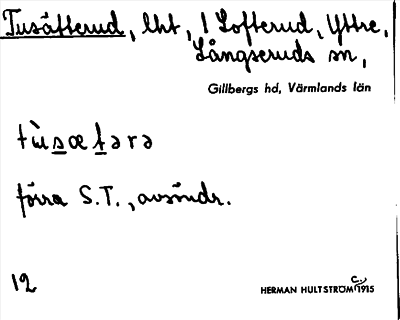 Tusätterud, lht, 1 Lofterud, Yttre,
Långseruds sn,
Gillbergs hd, Värmlands län
tùsætərə
förra S.T., avsöndr.
12
HERMAN HULTSTRÖM C. 1915